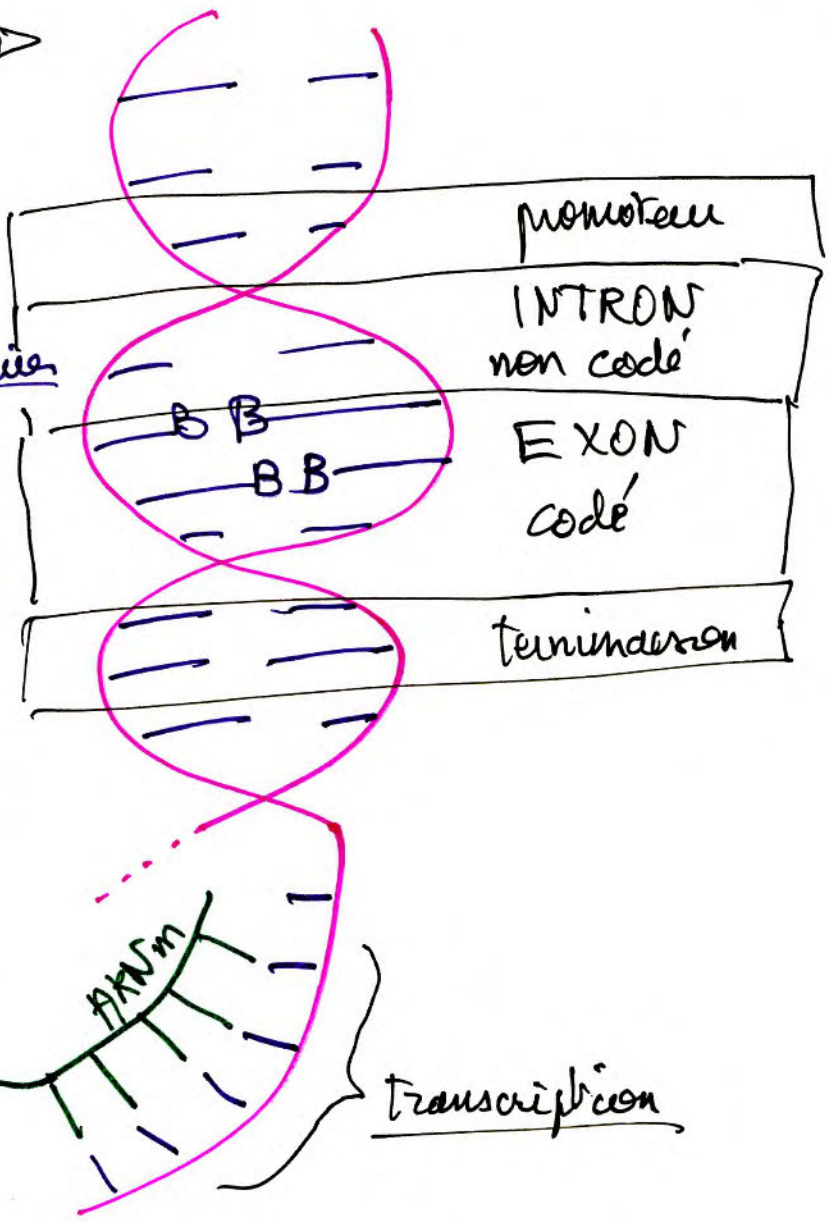 promoteur
INTRON
non codé
B B
EXON
B B
codé
terminaison
ARNm
transcription